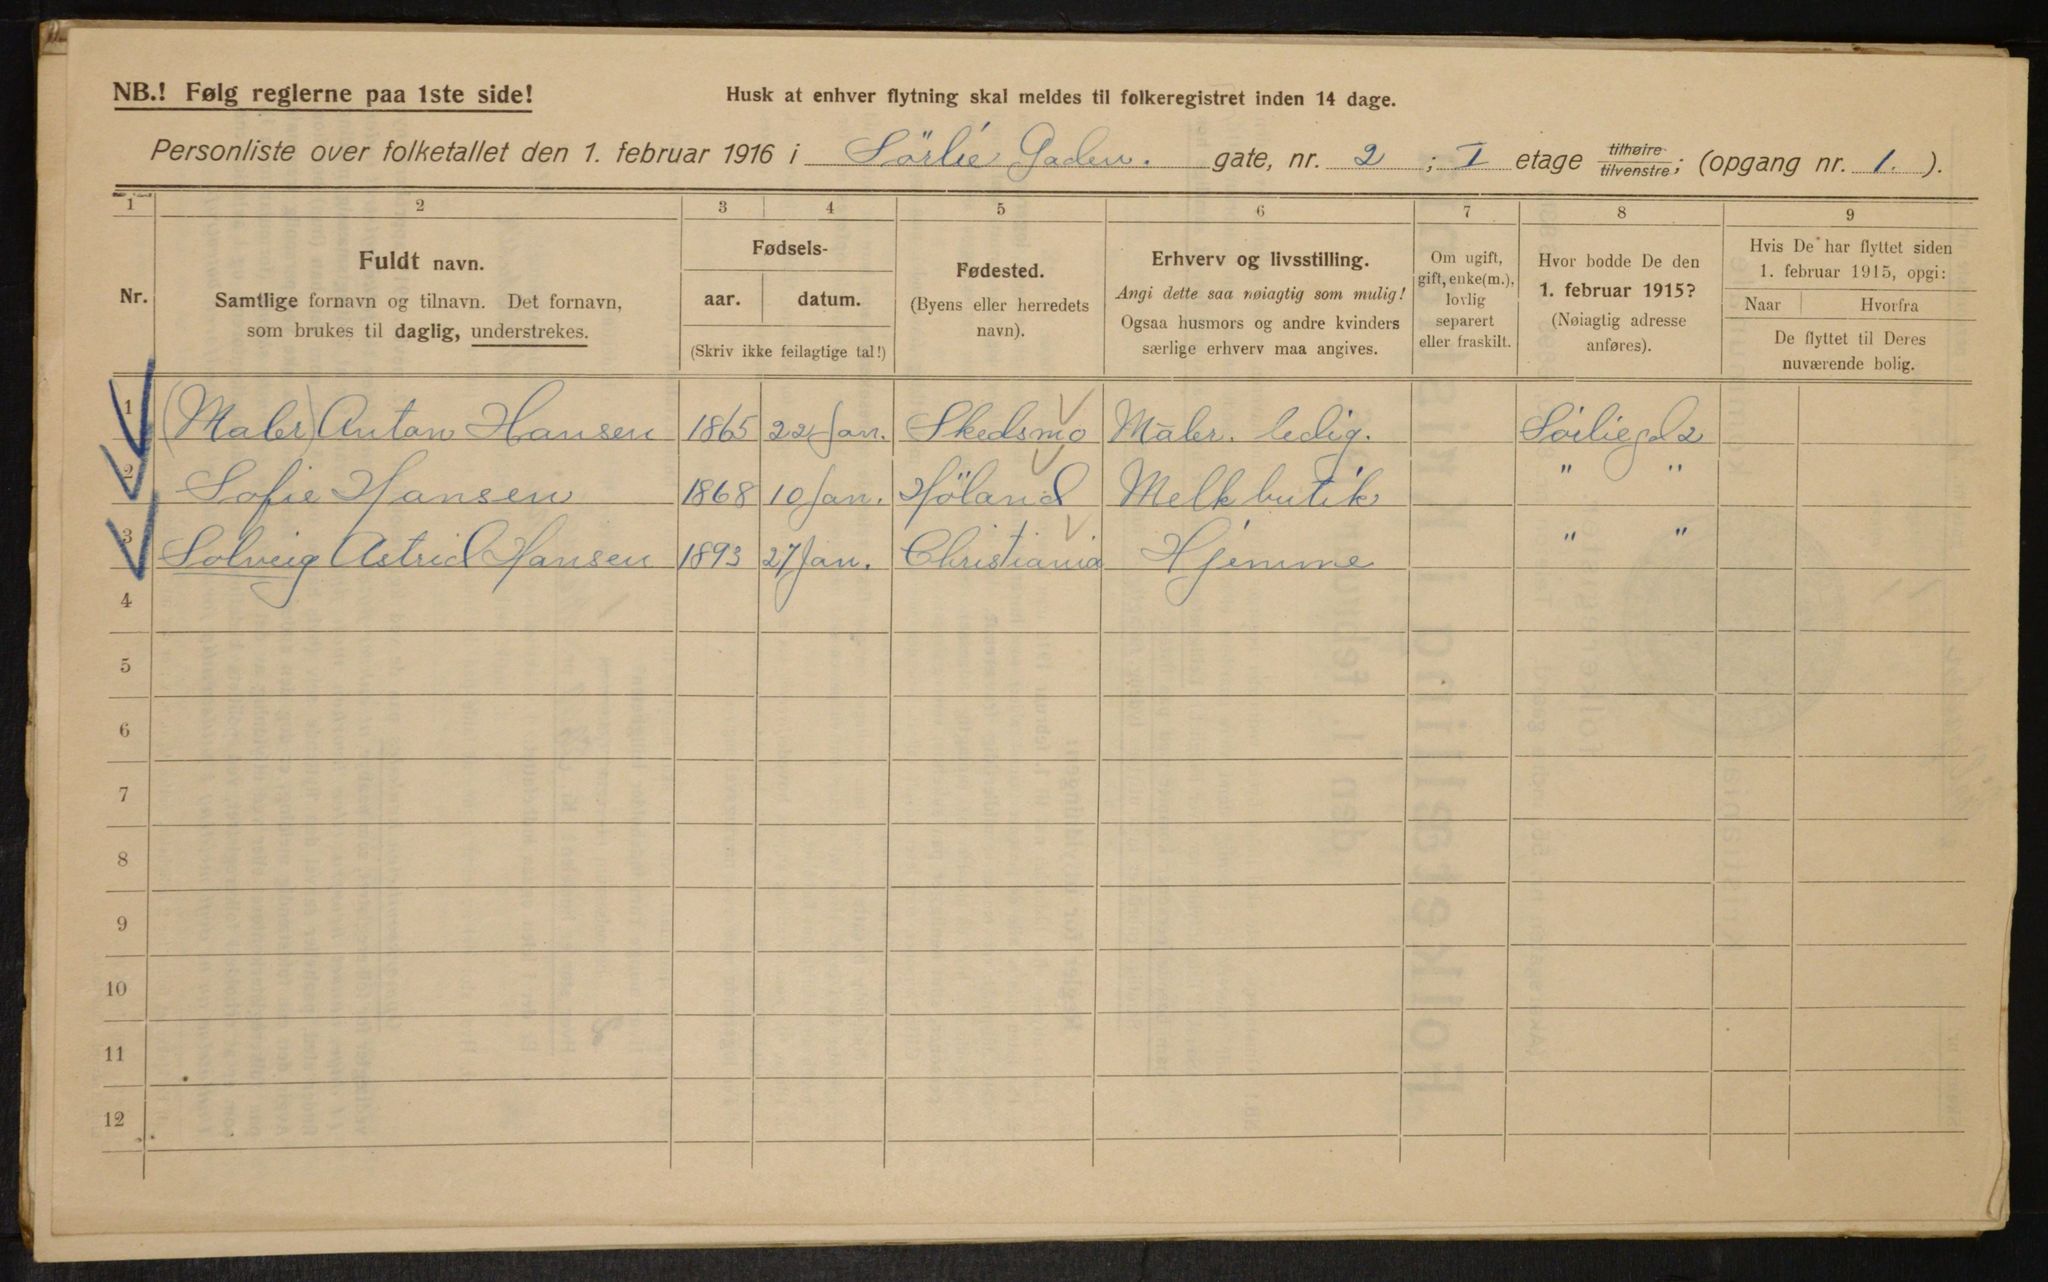 NB.! Følg reglerne paa 1ste side!
Husk at enhver flytning skal meldes til folkeregistret inden 14 dage.
Personliste over folketallet den 1. februar 1916 i Sörlie Gaden. gate, nr. 2 ; I etage tilhøire/tilvenstre; (opgang nr. 1. ).
1 2 3 4 5 6 7 8 9
Nr.
Fuldt navn.
Samtlige fornavn og tilnavn. Det fornavn,
som brukes til daglig, understrekes.
Fødsels-
aar. datum.
(Skriv ikke feilagtige tal!)
Fødested.
(Byens eller herredets
navn).
Erhverv og livsstilling.
Angi dette saa nøiagtig som mulig!
Ogsaa husmors og andre kvinders
særlige erhverv maa angives.
Om ugift,
gift, enke(m.),
lovlig
separert
eller fraskilt.
Hvor bodde De den
1. februar 1915?
(Nøiagtig adresse
anføres).
Hvis De har flyttet siden
1. februar 1915, opgi:
Naar Hvorfra
De flyttet til Deres
nuværende bolig.
1 (Maler) Anton Hansen 1865 22 Jan. Skedsmo Maler. ledig. Sörliegd 2
2 Sofie Hansen 1868 10 Jan. Höland Melkbutik " "
3 Solveig Astrid Hansen 1893 27 Jan. Christiania Hjemme " "
4
5
6
7
8
9
10
11
12